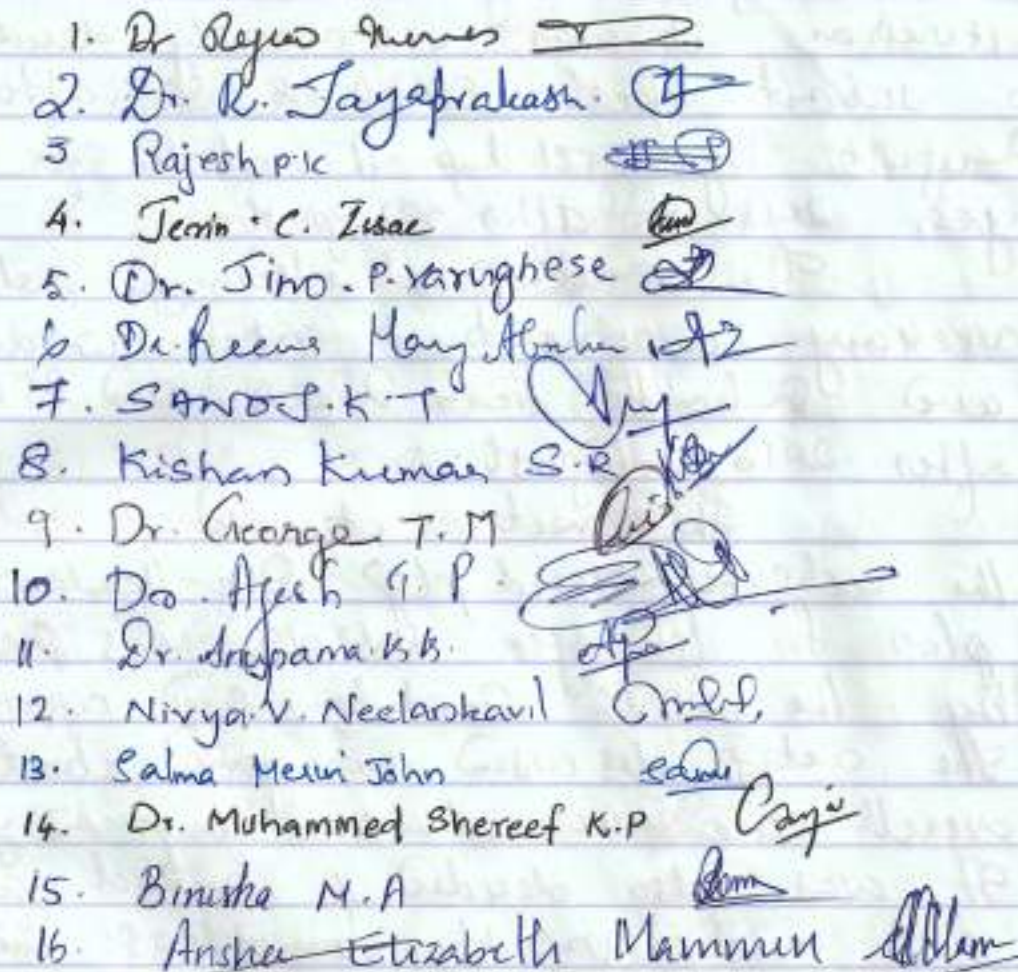 1. Dr
2. Dr. R. Jayaprakash.
3 Rajesh p.k
4. Jerrin. C. Issac
5. Dr. Jino. P. Varughese
6 Dr. Reena Mary Abraham
7. SANOJ. K. T
8. Kishan Kumar S.R
9. Dr. George T. M
10. Dr. Ajesh T. P.
11. Dr. Anupama. K.K.
12. Nivya. V. Neelankavil
13. Salma Merin John
14. Dr. Muhammed Shereef K.P
15. Binisha M.A
16. Ansha Elizabeth Mammen